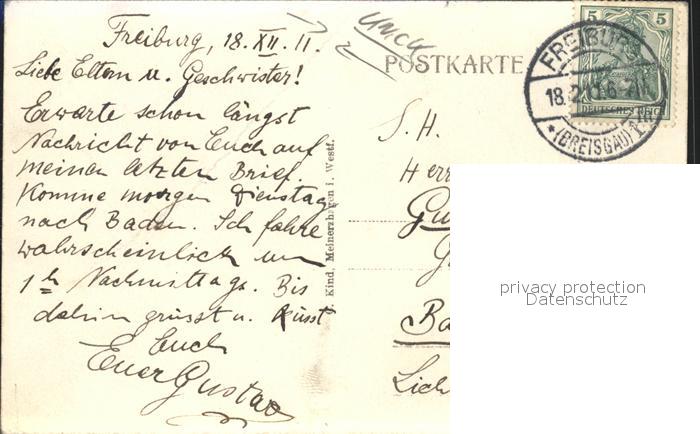 Freiburg, 18.XII.11.
Liebe Eltern u. Geschwister!
Erwarte schon längst
Nachricht von Euch auf
meinen letzten Brief.
Komme morgen Dienstag
nach Baden. Ich fahre
wahrscheinlich um
1h Nachmittags. Bis
dahin grüsst u. küsst
Euch
Euer Gustav
POSTKARTE
S. H.
Herr
Gu
Ba
Lich
Kind, Meinerzhagen i. Westf.
5 5
DEUTSCHES REICH
FREIBURG
18.12.11.6-7N
*(BREISGAU)1
privacy protection
Datenschutz